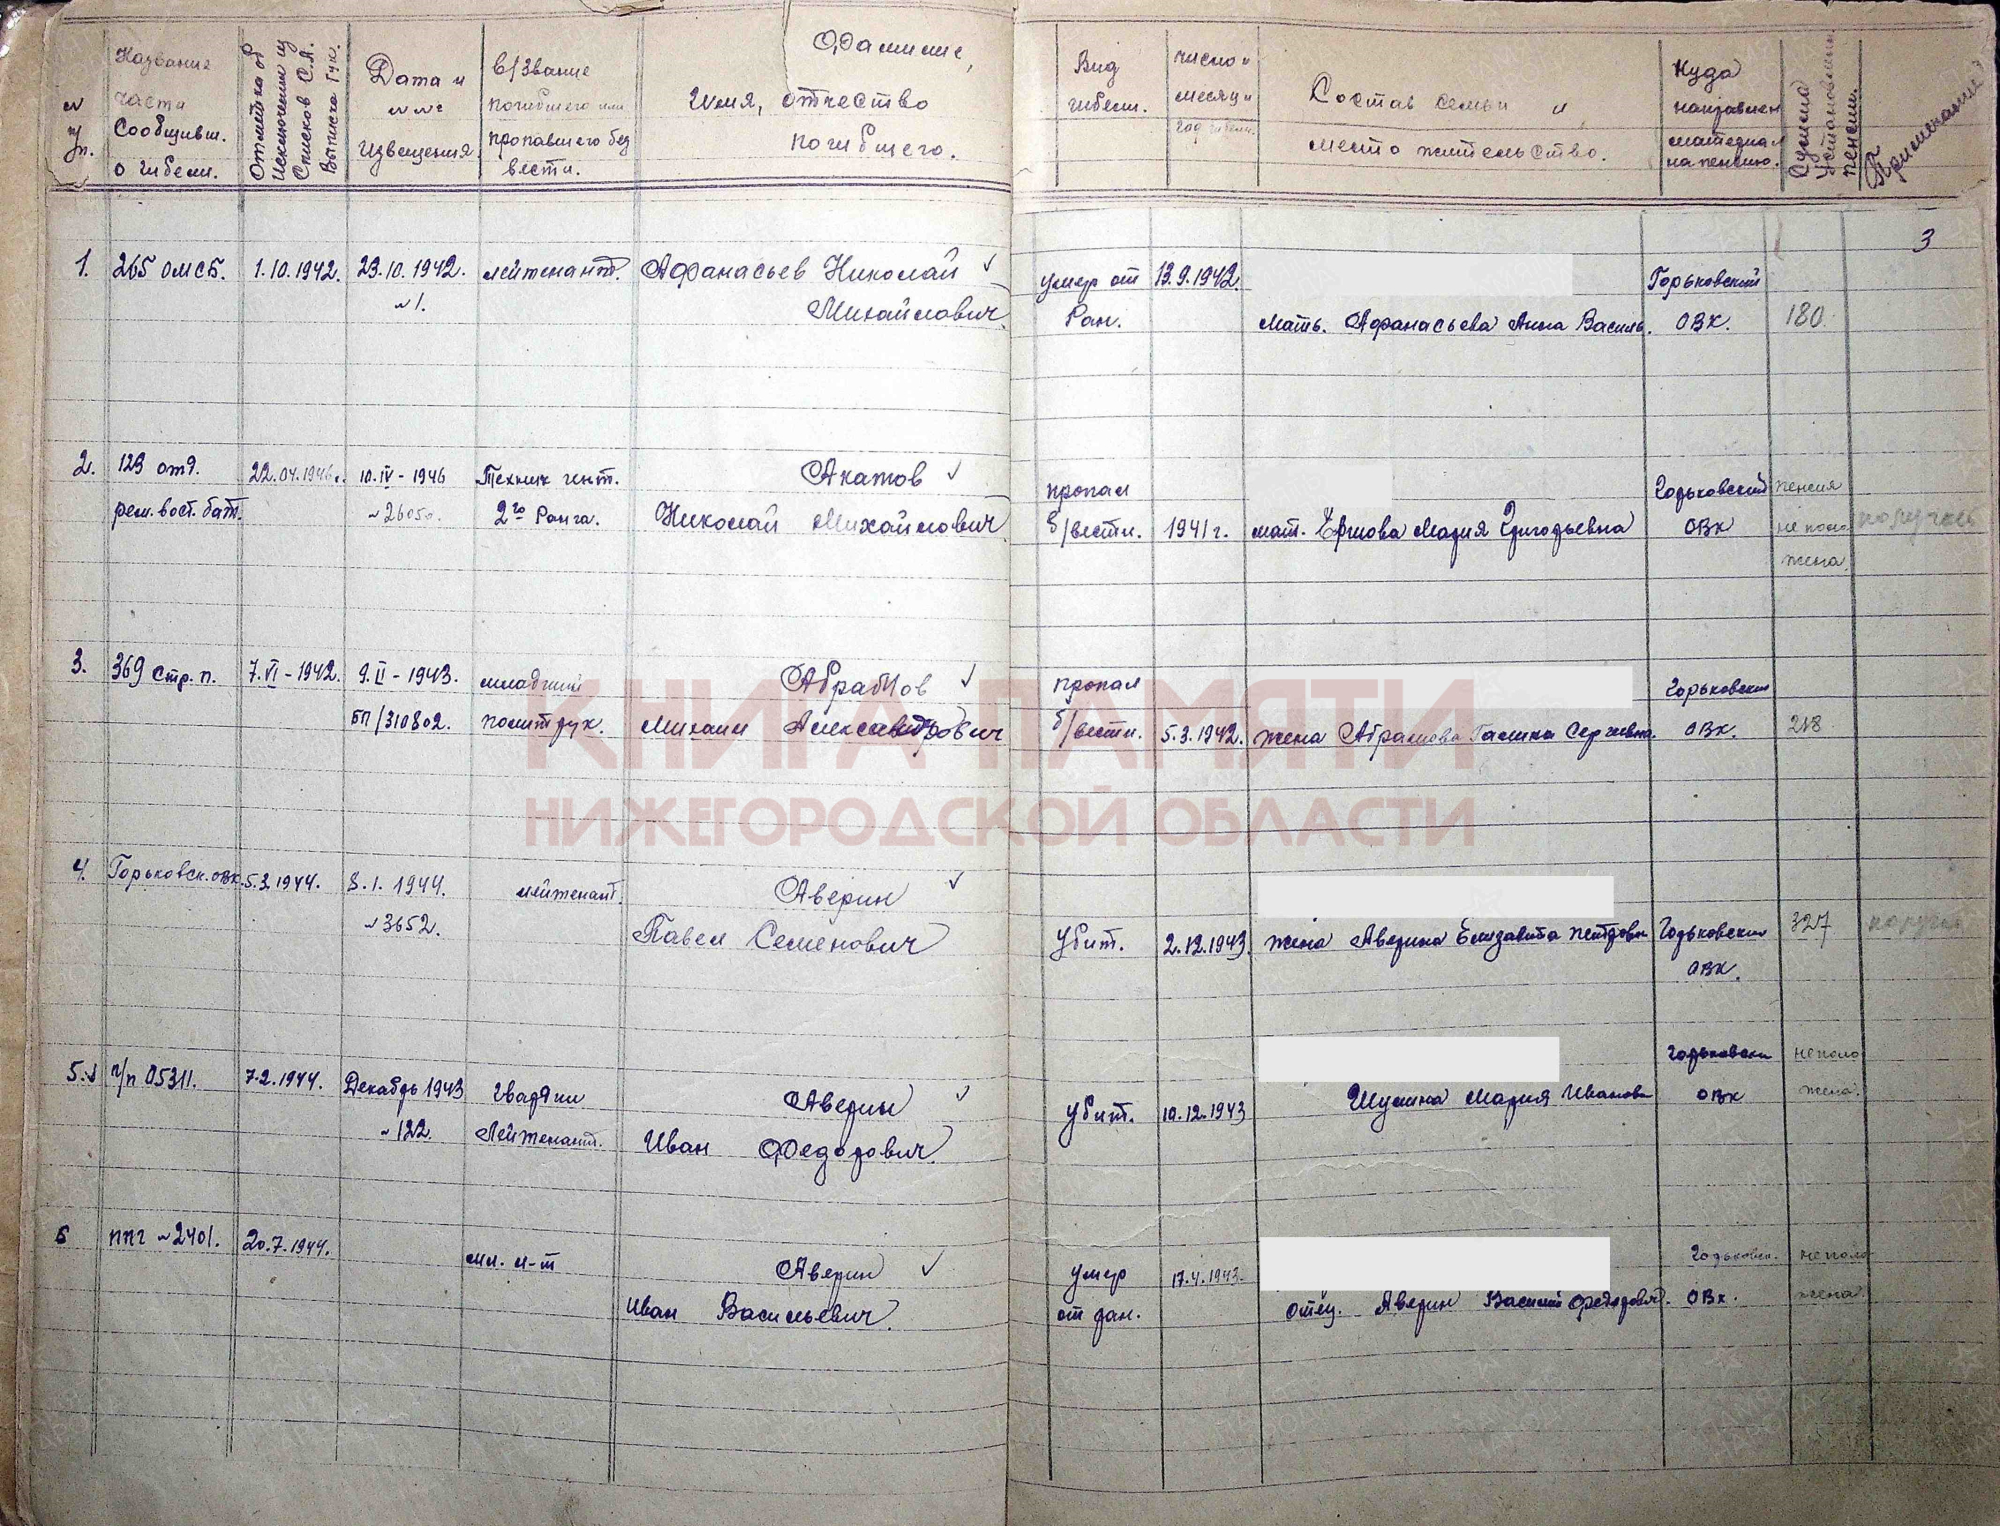 № п/п.
Название части Сообщивш. о гибели.
Отметка об Исключении из Списков С.А. Выписка ГУК.
Дата и №№ Извещения.
В/Звание погибшего или пропавшего без вести.
Фамилие, Имя, отчество погибшего.
Вид гибели.
число и месяц и год гибели.
Состав семьи и место жительство.
Куда направлен материал на пенсию.
Сумма Установленн. пенсии.
Примечание
3
1. 265 ОМСБ. 1.10.1942. 23.10.1942. лейтенант. Афанасьев Николай умер от 13.9.1942. Горьковский
№1. Михайлович Ран. мать. Афанасьева Анна Василь. ОВК. 180
2. 123 отд. 22.04.1946. 10.IV-1946 Техник инт. Акатов пропал Горьковский пенсия
рем. вост. бат. №26050. 2го Ранга. Николай Михайлович б/вести. 1941г. мат. Ершова Мария Григорьевна ОВК не поло
жена.
3. 369 Стр. п. 7.VI-1942. 9.II-1943. младший Абрамов пропал Горьковский
БП/310802. политрук. Михаил Александрович б/вести. 5.3.1942. жена Абрамова Галина Сергеевна. ОВК. 218
КНИГА ПАМЯТИ
НИЖЕГОРОДСКОЙ ОБЛАСТИ
4. Горьковск. ОВК. 5.3.1944. 8.1.1944. лейтенант. Аверин
№3652. Павел Семенович Убит. 2.12.1943. жена Аверина Елизавета Петровн Горьковский 327
ОВК.
5. п/п 05311. 7.2.1944. Декабрь 1943 гвардии Аверин Горьковски неполо
№122. Лейтенант. Иван Федорович. Убит. 10.12.1943 Шумина Мария Иванова ОВК жена.
6 ППГ №2401. 20.7.1944. мл. л-т Аверин умер 17.4.1943. Горьковск. неполо
Иван Васильевич. от ран. отец. Аверин Василий Федорович. ОВК. жена.